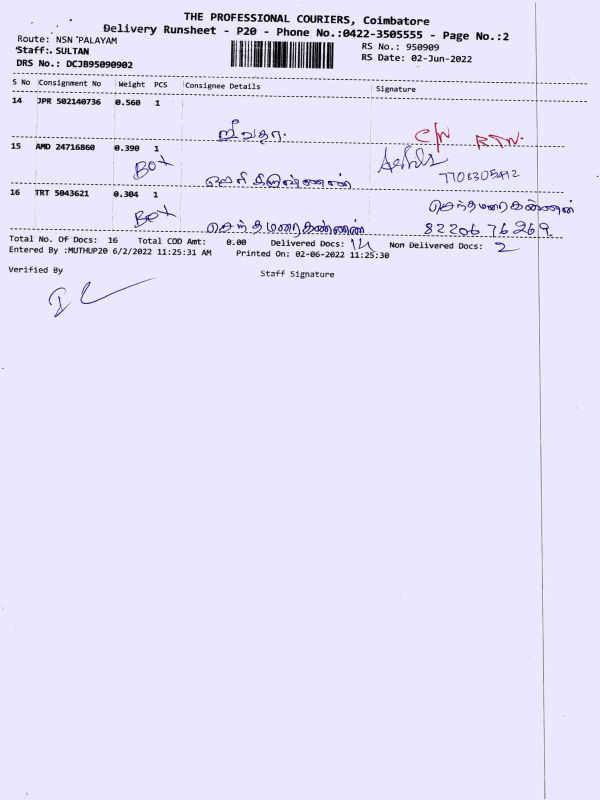 THE PROFESSIONAL COURIERS, Coimbatore
Delivery Runsheet - P20 - Phone No.:0422-3505555 - Page No.:2
Route: NSN PALAYAM
RS No.: 950909
Staff: SULTAN
RS Date: 02-Jun-2022
DRS No.: DCJB95090902
S No Consignment No Weight PCS Consignee Details Signature
14 JPR 502140736 0.560 1
C/N RTN.
15 AMD 24716860 0.390 1
BOX 7708305412
16 TRT 5043621 0.304 1
செந்தமரைகண்ணன்
BOX செந்தமரைகண்ணன் 8220676269.
Total No. Of Docs: 16 Total COD Amt: 0.00 Delivered Docs: 14 Non Delivered Docs: 2
Entered By :MUTHUP20 6/2/2022 11:25:31 AM Printed On: 02-06-2022 11:25:30
Verified By Staff Signature